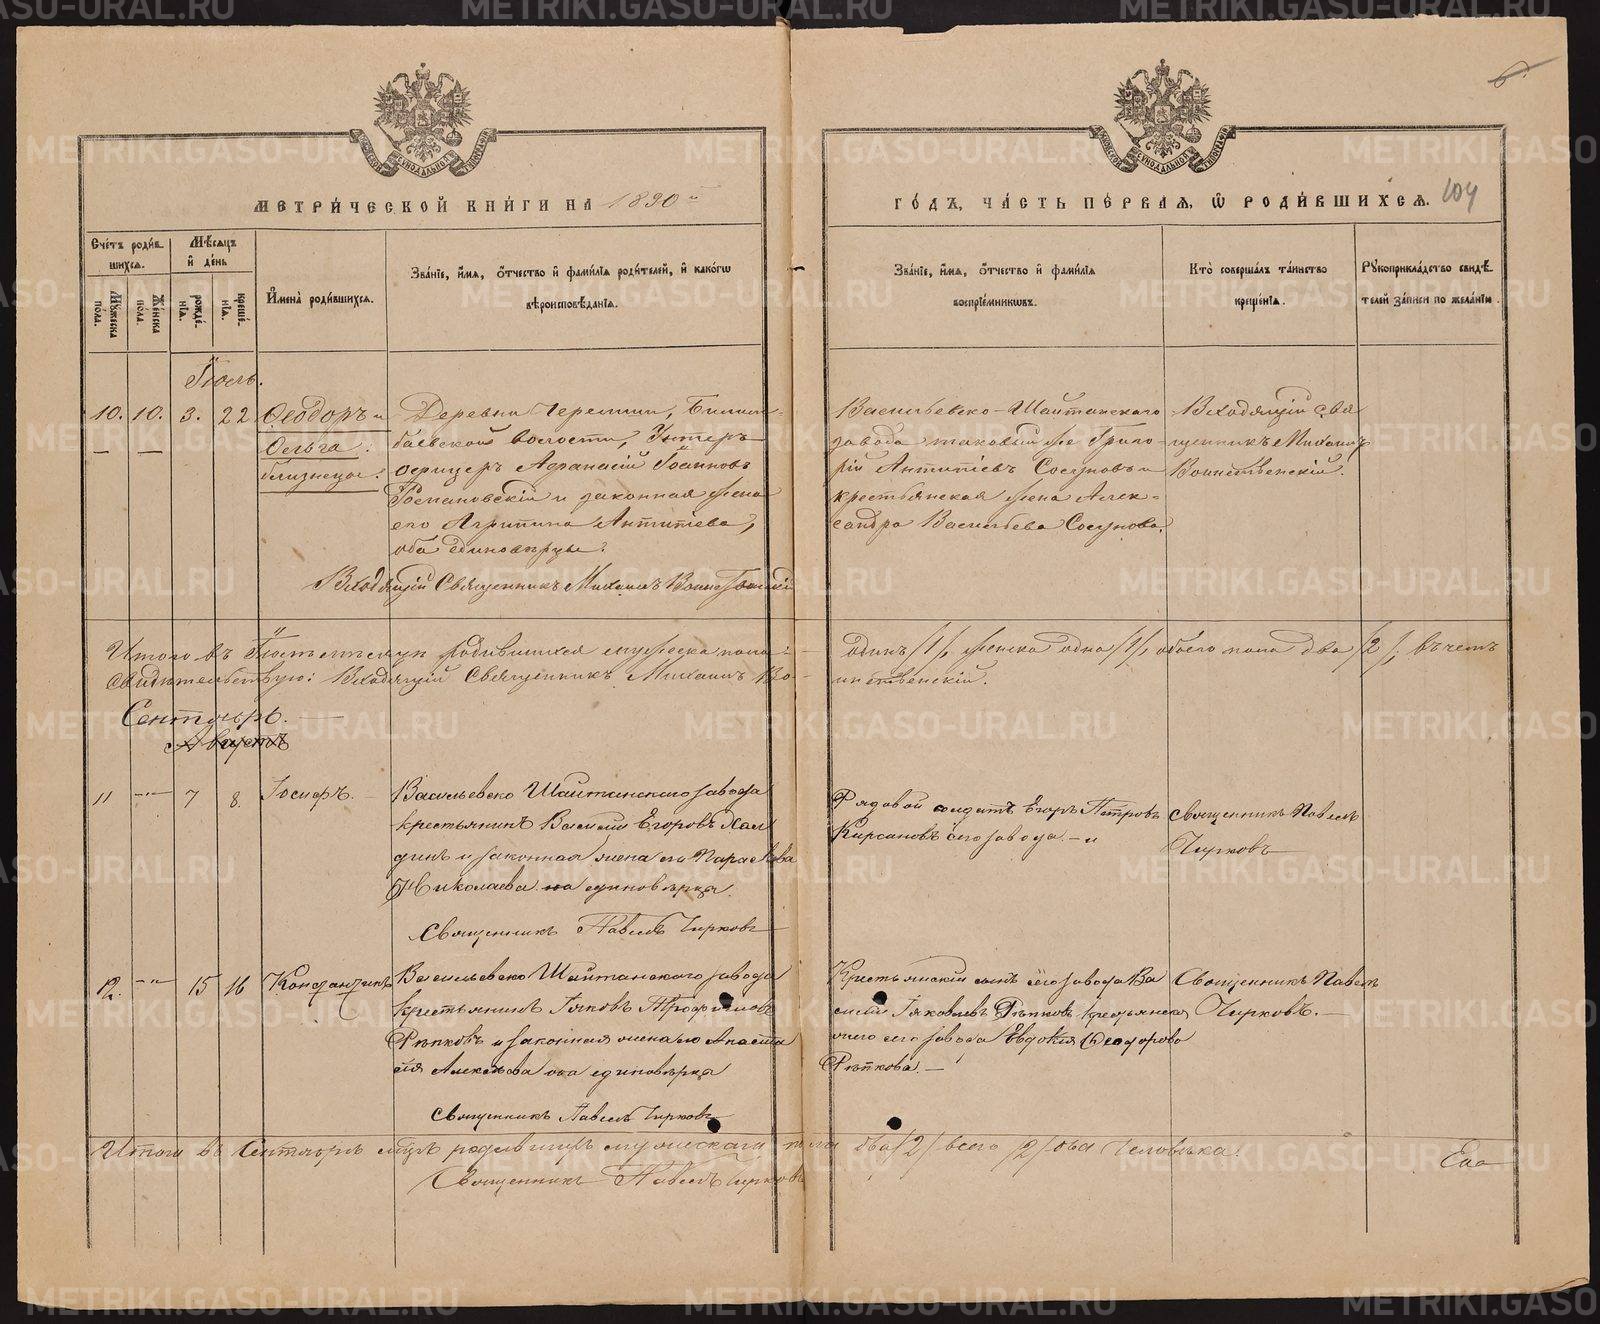 METRIKI.GASO-URAL.RU
МЕТРИЧЕСКОЙ КНИГИ НА 1890 й
ГОДЪ, ЧАСТЬ ПЕРВАЯ, Ѡ РОДИВШИХСЯ. 104
Счетъ родив-
шихся.
Мужеска пола.
Женска пола.
Мѣсяцъ и день
рожденія.
крещенія.
Имена родившихся.
Званіе, имя, отчество и фамилія родителей, и какогѡ
вѣроисповѣданія.
Званіе, имя, отчество и фамилія
воспріемниковъ.
Кто совершалъ таинство
крещенія.
Рукоприкладство свидѣ-
телей записи по желанію.
Іюль.
10. 10. 3. 22. Ѳеодоръ и
Ольга:
близнецы.
Деревни Черемши, Билим-
баевской волости, Унтеръ
офицеръ Афанасій Іоанновъ
Романовскій и законная жена
его Агрипина Антипіева,
оба единовѣрцы.
Входящій Священникъ Михаилъ Воинственскій
Васильевско-Шайтанскаго
завода таковый же Григо-
рій Антипіевъ Сосуновъ и
крестьянская жена Алек-
сандра Васильева Сосунова.
Входящій свя
щенникъ Михаилъ
Воинственскій.
Итого въ Іюлѣ родившихся мужеска пола
одинъ /1/, женска одна /1/, обоего пола два /2/, въ чемъ
свидѣтельствую: Входящій Священникъ Михаилъ Во-
инственскій.
Сентябрь.
Августъ
11 7 8. Іосифъ.
Васильевско Шайтанскаго завода
крестьянинъ Василій Егоровъ
и законная жена его Параскева
Николаева единовѣрца.
Священникъ Павелъ Чирковъ
Рядовой солдатъ Егоръ Петровъ
Кирсановъ сего завода
Священникъ Павелъ
Чирковъ
12. 15 16 Константинъ
Васильевско Шайтанскаго завода
крестьянинъ Іяковъ Трофимовъ
Рѣпковъ и законная жена его Анаста
сія Алексѣева оба единовѣрца
Священникъ Павелъ Чирковъ
Крестьянскій сынъ сего завода Ва
силій Іяковлевъ Рѣпковъ, крестьянска
сего завода Евдокія Ѳеодорова
Рѣпкова.
Священникъ Павелъ
Чирковъ.
Итого въ Сентябрѣ мѣсяцѣ мужескаго пола два /2/ всего /2/ два человѣка.
Священникъ Павелъ Чирковъ